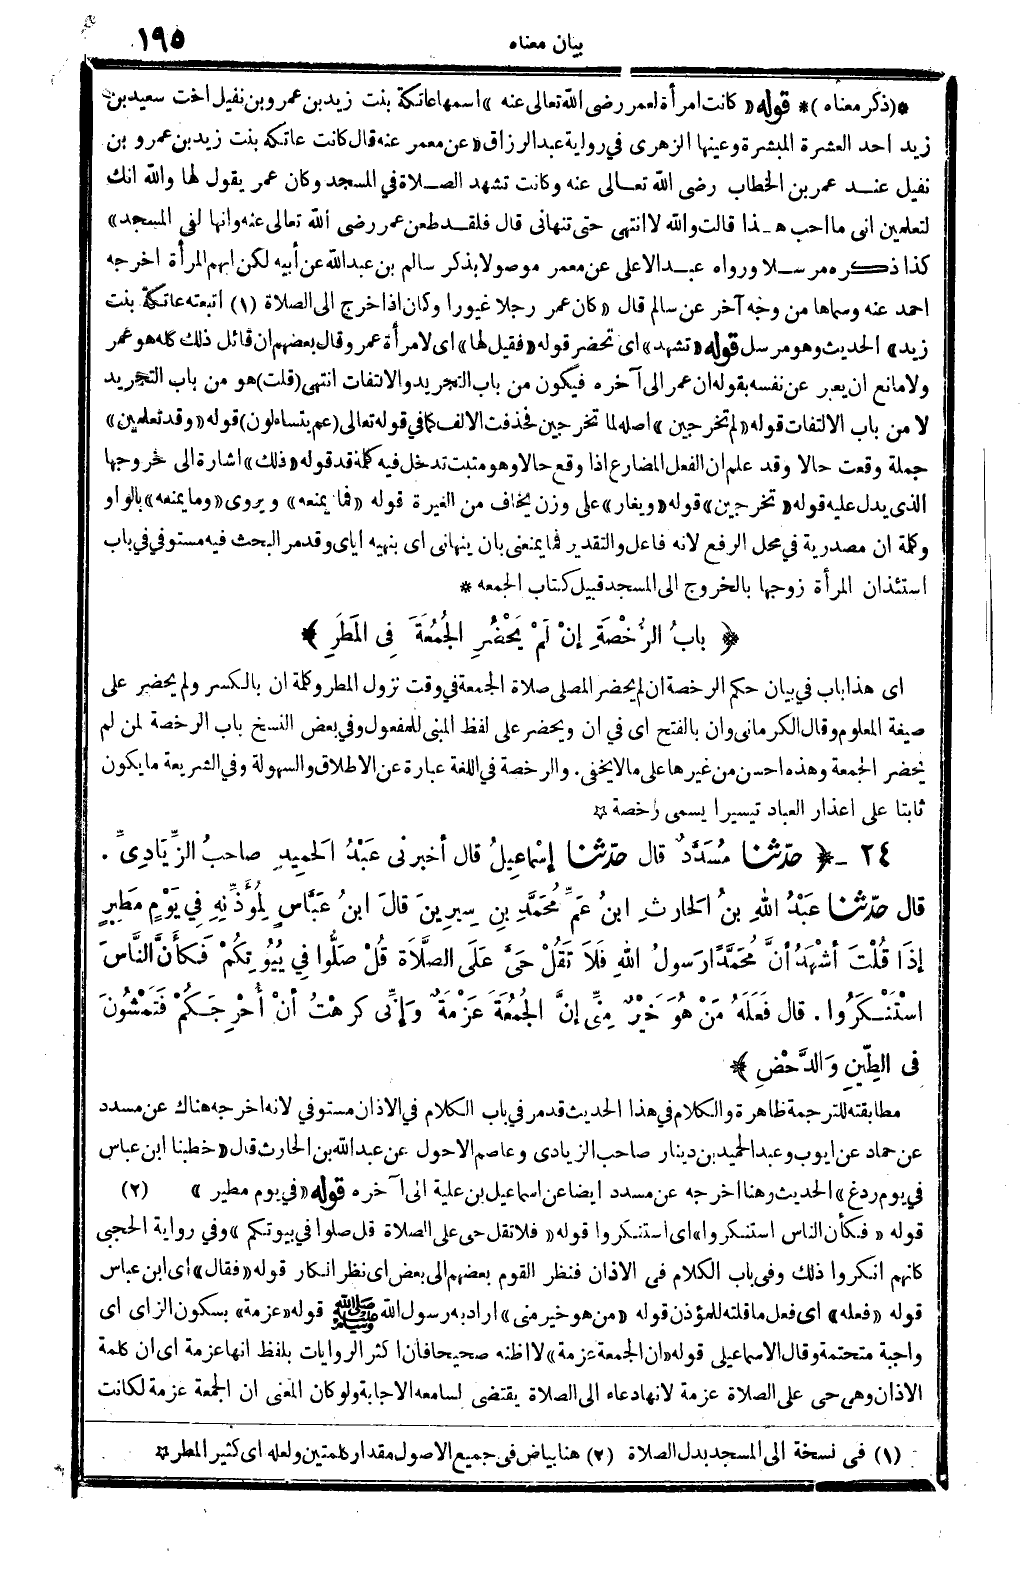 بيان معناه ١٩٥
*(ذكر معناه)* قوله «كانت امرأة لعمر رضى الله تعالى عنه» اسمها عاتكة بنت زيد بن عمرو بن نفيل اخت سعيد بن
زيد احد العشرة المبشرة وعينها الزهرى في رواية عبد الرزاق «عن معمر عنه قال كانت عاتكة بنت زيد بن عمرو بن
نفيل عند عمر بن الخطاب رضى الله تعالى عنه وكانت تشهد الصلاة في المسجد وكان عمر يقول لها والله انك
لتعلمين انى ما احب هذا قالت والله لا انتهى حتى تنهانى قال فلقد طعن عمر رضى الله تعالى عنه وانها لفى المسجد»
كذا ذكره مرسلا ورواه عبد الاعلى عن معمر موصولا بذكر سالم بن عبدالله عن أبيه لكن ابهم المرأة اخرجه
احمد عنه وسماها من وجه آخر عن سالم قال «كان عمر رجلا غيورا وكان اذا خرج الى الصلاة (١) اتبعته عاتكة بنت
زيد» الحديث وهو مرسل قوله «تشهد» اى تحضر قوله «فقيل لها» اى لامرأة عمر وقال بعضهم ان قائل ذلك كله هو عمر
ولا مانع ان يعبر عن نفسه بقوله ان عمر الى آخره فيكون من باب التجريد والالتفات انتهى (قلت) هو من باب التجريد
لا من باب الالتفات قوله «لم تخرجين» اصله لما تخرجين فحذفت الالف كما في قوله تعالى (عم يتساءلون) قوله «وقد تعلمين»
جملة وقعت حالا وقد علم ان الفعل المضارع اذا وقع حالا وهو مثبت تدخل فيه كلمة قد قوله «ذلك» اشارة الى خروجها
الذى يدل عليه قوله «تخرجين» قوله «ويغار» على وزن يخاف من الغيرة قوله «فما يمنعه» ويروى «وما يمنعه» بالواو
وكلمة ان مصدرية في محل الرفع لانه فاعل والتقدير فما يمنعنى بان ينهانى اى بنهيه اياى وقد مر البحث فيه مستوفي في باب
استئذان المرأة زوجها بالخروج الى المسجد قبيل كتاب الجمعه *
﴿ بابُ الرُّخْصَةِ إنْ لَمْ يَحْضُرِ الجُمُعَةَ فِى المَطَرِ ﴾
اى هذا باب في بيان حكم الرخصة ان لم يحضر المصلى صلاة الجمعة في وقت نزول المطر وكلمة ان بالكسر ولم يحضر على
صيغة المعلوم وقال الكرمانى وان بالفتح اى في ان ويحضر على لفظ المبنى للمفعول وفي بعض النسخ باب الرخصة لمن لم
يحضر الجمعة وهذه احسن من غيرها على ما لا يخفى. والرخصة في اللغة عبارة عن الاطلاق والسهولة وفي الشريعة ما يكون
ثابتا على اعذار العباد تيسيرا يسمى رخصة ☆
٢٤ - ﴿ حدّثنا مُسَدَّدٌ قال حدّثنا إسْماعِيلُ قال أخبرنى عَبْدُ الحَمِيدِ صاحبُ الزِّيَادِىِّ .
قال حدّثنا عَبْدُ اللهِ بنُ الحَارِثِ ابنُ عَمِّ مُحَمَّدِ بنِ سِيرِينَ قالَ ابنُ عَبَّاسٍ لِمُؤَذِّنِهِ فِي يَوْمٍ مَطِيرٍ
إذَا قُلْتَ أشْهَدُ أنَّ مُحَمَّدًا رَسولُ اللهِ فَلاَ تَقُلْ حَىَّ عَلَى الصَّلاَةِ قُلْ صَلُّوا فِي بُيُوتِكُمْ فَكأَنَّ النَّاسَ
اسْتَنْكَرُوا . قال فَعَلَهُ مَنْ هُوَ خَيْرٌ مِنِّى إنَّ الجُمُعَةَ عَزْمَةٌ وَإِنِّى كَرِهْتُ أنْ أُحْرِجَكُمْ فَتَمْشُونَ
فِى الطِّينِ وَالدَّحْضِ ﴾
مطابقته للترجمة ظاهرة والكلام في هذا الحديث قد مر في باب الكلام في الاذان مستوفي لانه اخرجه هناك عن مسدد
عن حماد عن ايوب وعبد الحميد بن دينار صاحب الزيادى وعاصم الاحول عن عبدالله بن الحارث قال «خطبنا ابن عباس
في يوم ردغ» الحديث وهنا اخرجه عن مسدد ايضا عن اسماعيل بن علية الى آخره قوله «في يوم مطير» (٢)
قوله «فكأن الناس استنكروا» اى استنكروا قوله «فلا تقل حى على الصلاة قل صلوا في بيوتكم» وفي رواية الحجبى
كانهم انكروا ذلك وفى باب الكلام فى الاذان فنظر القوم بعضهم الى بعض اى نظر انكار قوله «فقال» اى ابن عباس
قوله «فعله» اى فعل ما قلته للمؤذن قوله «من هو خير منى» اراد به رسول الله ﷺ قوله «عزمة» بسكون الزاى اى
واجبة متحتمة وقال الاسماعيلى قوله «ان الجمعة عزمة» لا اظنه صحيحا فان اكثر الروايات بلفظ انها عزمة اى ان كلمة
الاذان وهى حى على الصلاة عزمة لانها دعاء الى الصلاة يقتضى لسامعه الاجابة ولو كان المعنى ان الجمعة عزمة لكانت
(١) فى نسخة الى المسجد بدل الصلاة (٢) هنا بياض فى جميع الاصول مقدار كلمتين ولعله اى كثير المطر ☆